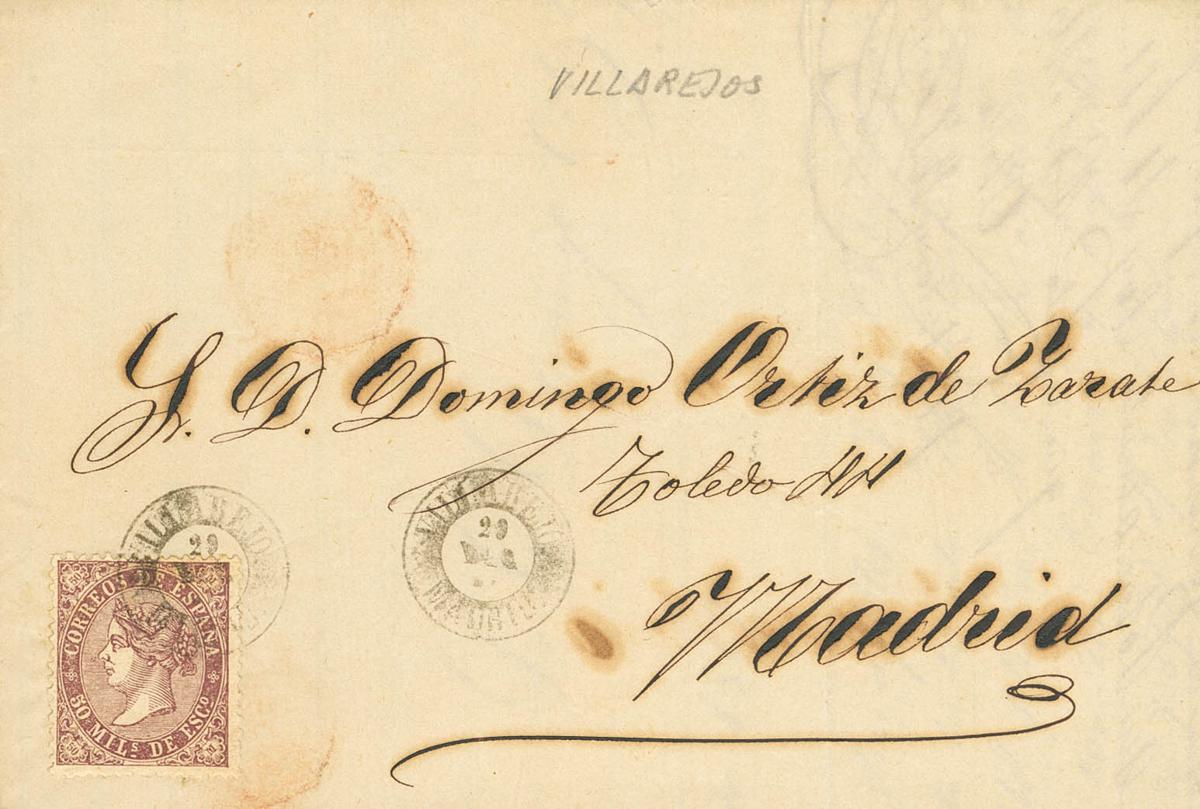 VILLAREJOS
S. D. Domingo Ortiz de Zarate
Toledo 44
Madrid
VILLAREJO
29
MADRID
VILLAREJO
29
CORREOS DE ESPAÑA
50 MILS DE ESCO